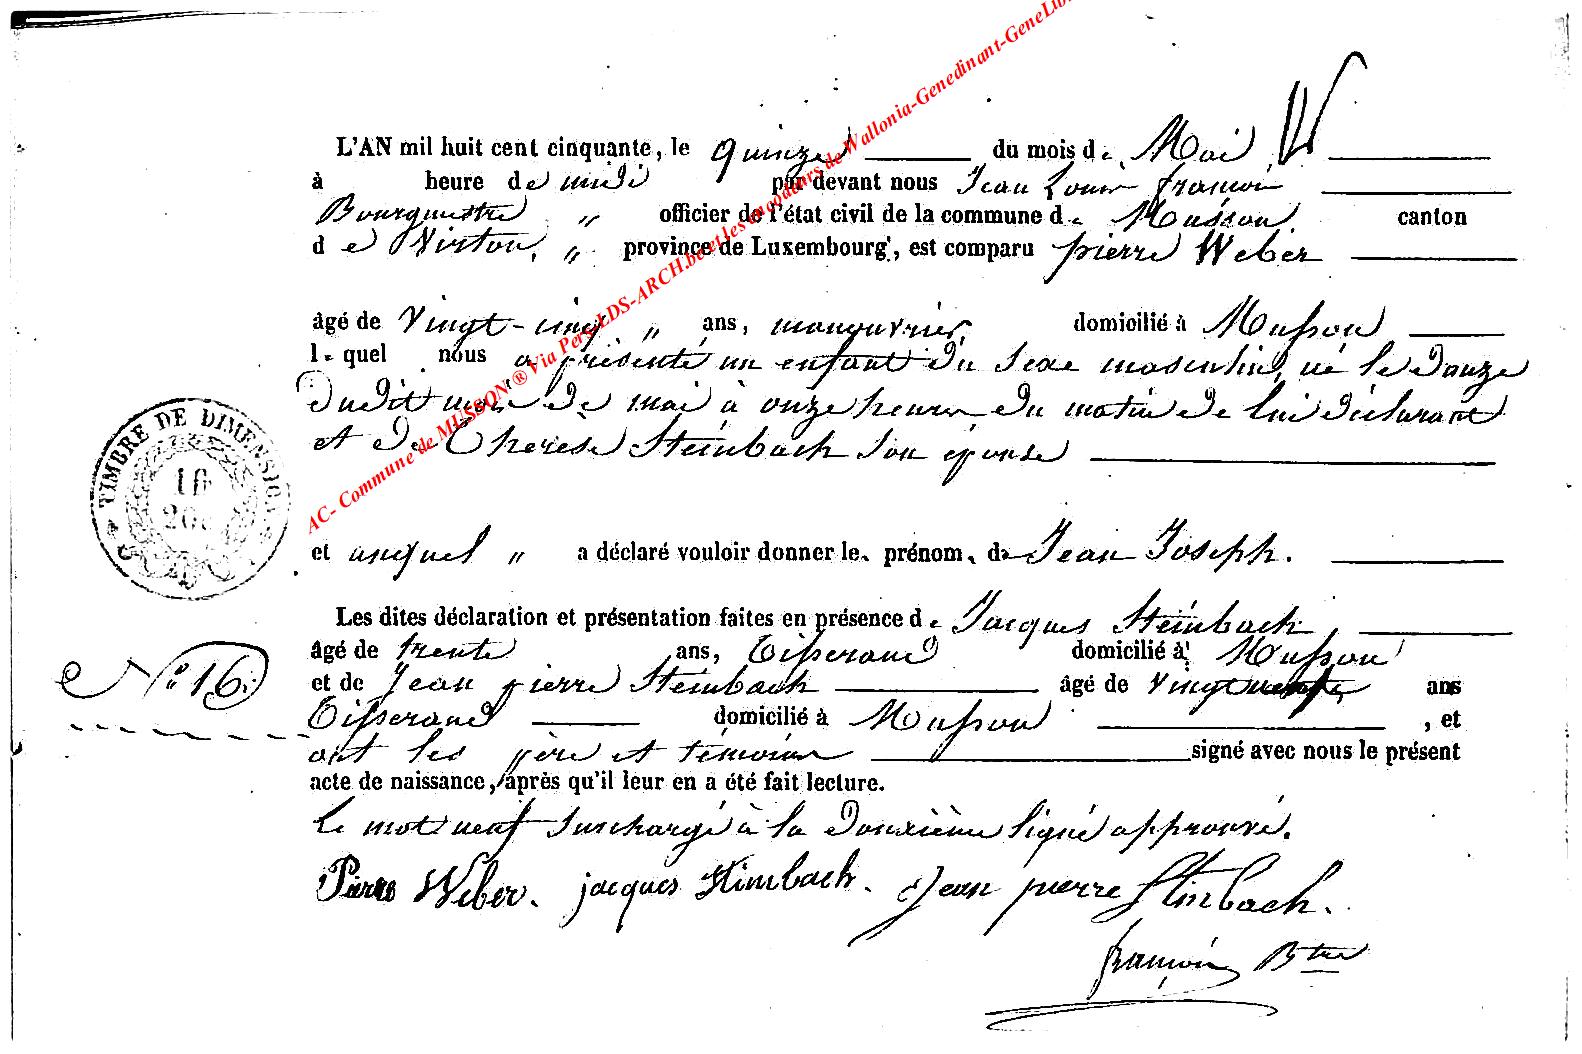 L'AN mil huit cent cinquante, le quinze du mois de Mai
à heure de midi par devant nous Jean Louis françois
Bourgmestre " officier de l'état civil de la commune de Musson. canton
de Virton, " province de Luxembourg, est comparu pierre Weber
âgé de Vingt-cinq " ans, manouvrier, domicilié à Musson
lequel nous a présenté un enfant du sexe masculin, né le douze
dudit mois de mai à onze heures du matin de lui déclarant
et de Thérèse Steinbach son épouse
et auquel " a déclaré vouloir donner le prénom de Jean Joseph.
Les dites déclaration et présentation faites en présence de Jacques Steinbach,
âgé de trente ans, Tisserand domicilié à Musson
et de Jean pierre Steinbach âgé de Vingt neuf ans
Tisserand domicilié à Musson , et
ont les père et témoins signé avec nous le présent
acte de naissance, après qu'il leur en a été fait lecture.
Le mot neuf surchargé à la douxième ligne approuvé.
Pierre Weber. jacques Stimbach. Jean pierre Stinbach.
françois Btre
TIMBRE DE DIMENSION
N.° 16.
AC- Commune de MUSSON ® Via Pers LDS-ARCH.be et les encodeurs de Wallonia-Genedinant-GeneLib